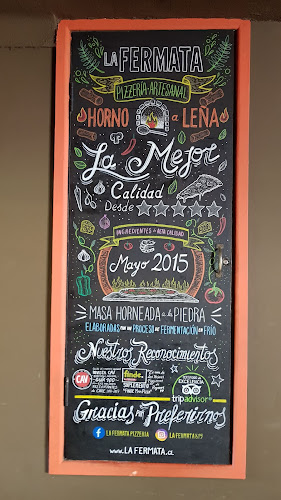 LA FERMATA
PIZZERÍA ARTESANAL
HORNO a LEÑA
La Mejor
Calidad
Desde
INGREDIENTES de ALTA CALIDAD
Mayo 2015
MASA HORNEADA a la PIEDRA
ELABORADAS POR UN PROCESO DE FERMENTACIÓN EN FRÍO
Nuestros Reconocimientos
CAV
REVISTA CAV
finde.
SUPLEMENTO
EXCELENCIA
tripadvisor
Gracias por Preferirnos
LA FERMATA PIZZERIA
LAFERMATA
www.LAFERMATA.cl